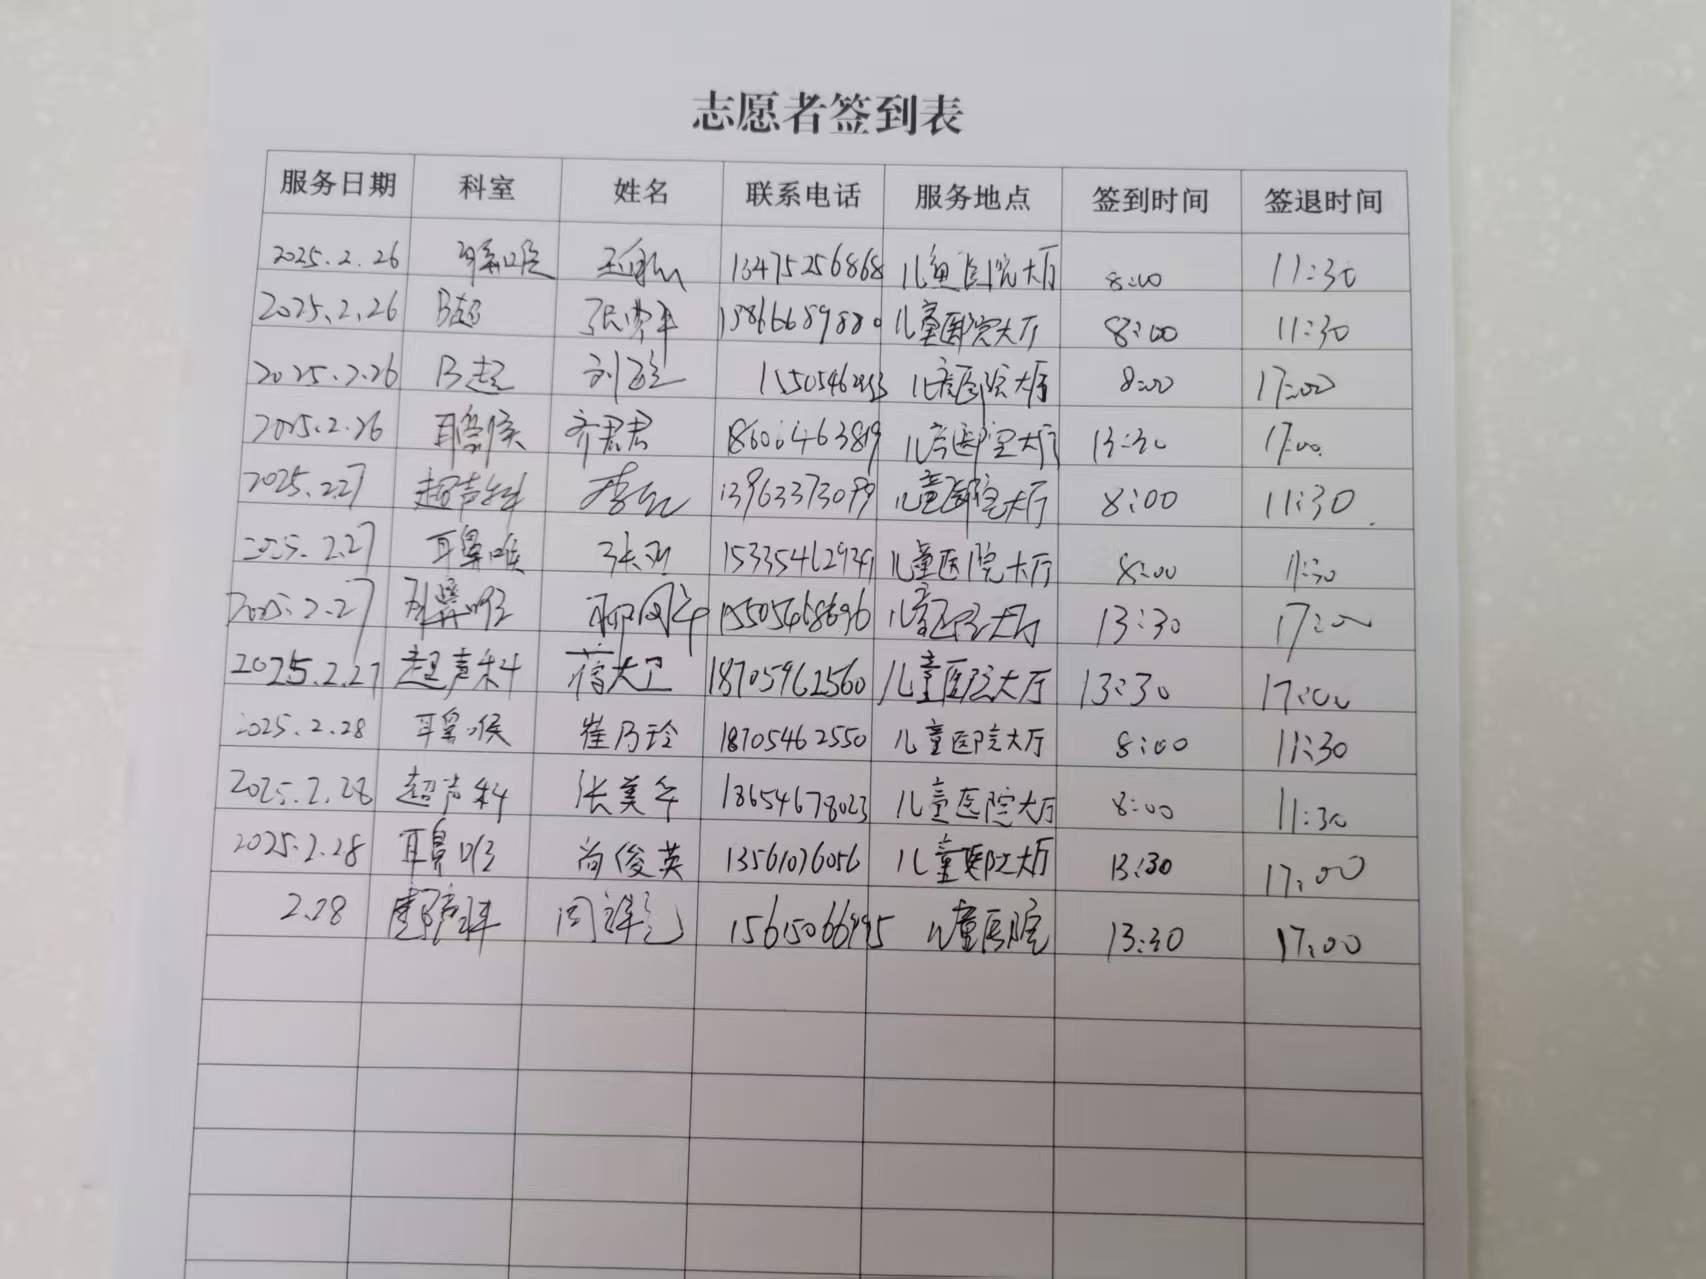 志愿者签到表
服务日期 科室 姓名 联系电话 服务地点 签到时间 签退时间
2025.2.26 耳鼻喉 13475256868 儿童医院大厅 8:00 11:30
2025.2.26 B超 儿童医院大厅 8:00 11:30
2025.2.26 B超 儿童医院大厅 8:00 17:00
2025.2.26 耳鼻喉 齐君君 儿童医院大厅 13:30 17:00
2025.2.27 超声科 13963373099 儿童医院大厅 8:00 11:30
2025.2.27 耳鼻喉 儿童医院大厅 8:00 11:30
2025.2.27 耳鼻喉 15505468696 儿童医院大厅 13:30 17:00
2025.2.27 超声科 蒋大卫 儿童医院大厅 13:30 17:00
2025.2.28 耳鼻喉 崔乃玲 18705462550 儿童医院大厅 8:00 11:30
2025.2.28 超声科 张美华 18654678023 儿童医院大厅 8:00 11:30
2025.2.28 耳鼻喉 尚俊英 13561076056 儿童医院大厅 13:30 17:00
2.28 儿童医院 13:30 17:00